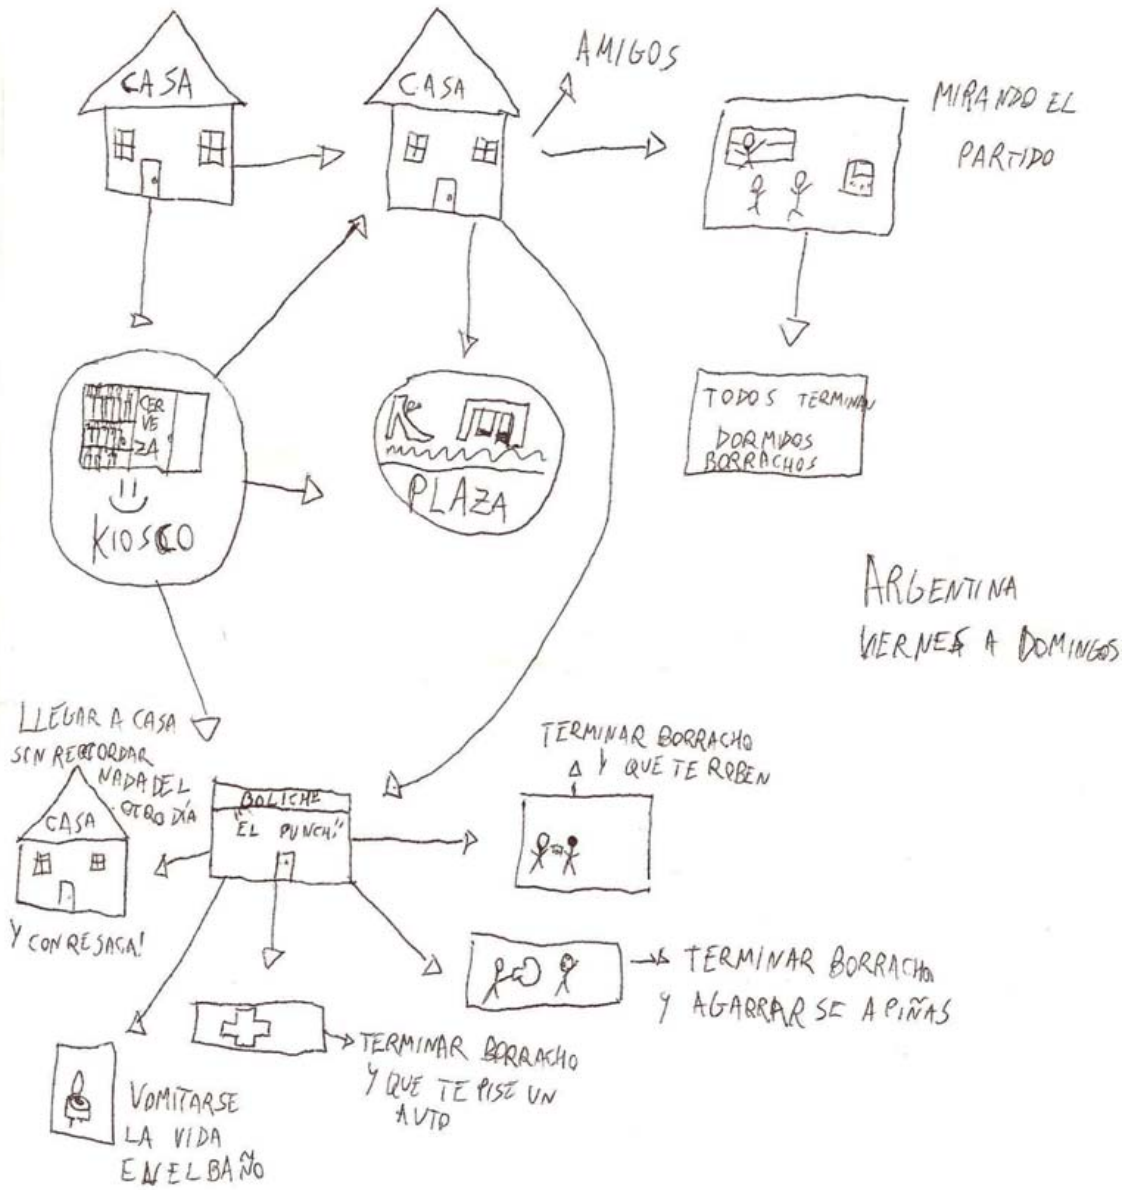 CASA
CASA
AMIGOS
MIRANDO EL
PARTIDO
CER
VE
ZA
KIOSCO
PLAZA
TODOS TERMINAN
DORMIDOS
BORRACHOS
ARGENTINA
VIERNES A DOMINGOS
LLEGAR A CASA
SIN RECORDAR
NADA DEL
OTRO DÍA
CASA
Y CON RESACA!
BOLICHE
"EL PUNCHI"
TERMINAR BORRACHO
Y QUE TE ROBEN
TERMINAR BORRACHO
Y AGARRARSE A PIÑAS
TERMINAR BORRACHO
Y QUE TE PISE UN
AUTO
VOMITARSE
LA VIDA
EN EL BAÑO